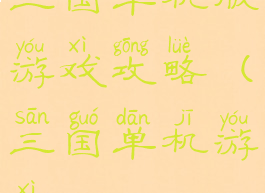 三国单机版
yóu xì gōng lüè
游戏攻略（
sān guó dān jī yóu
三国单机游
xì